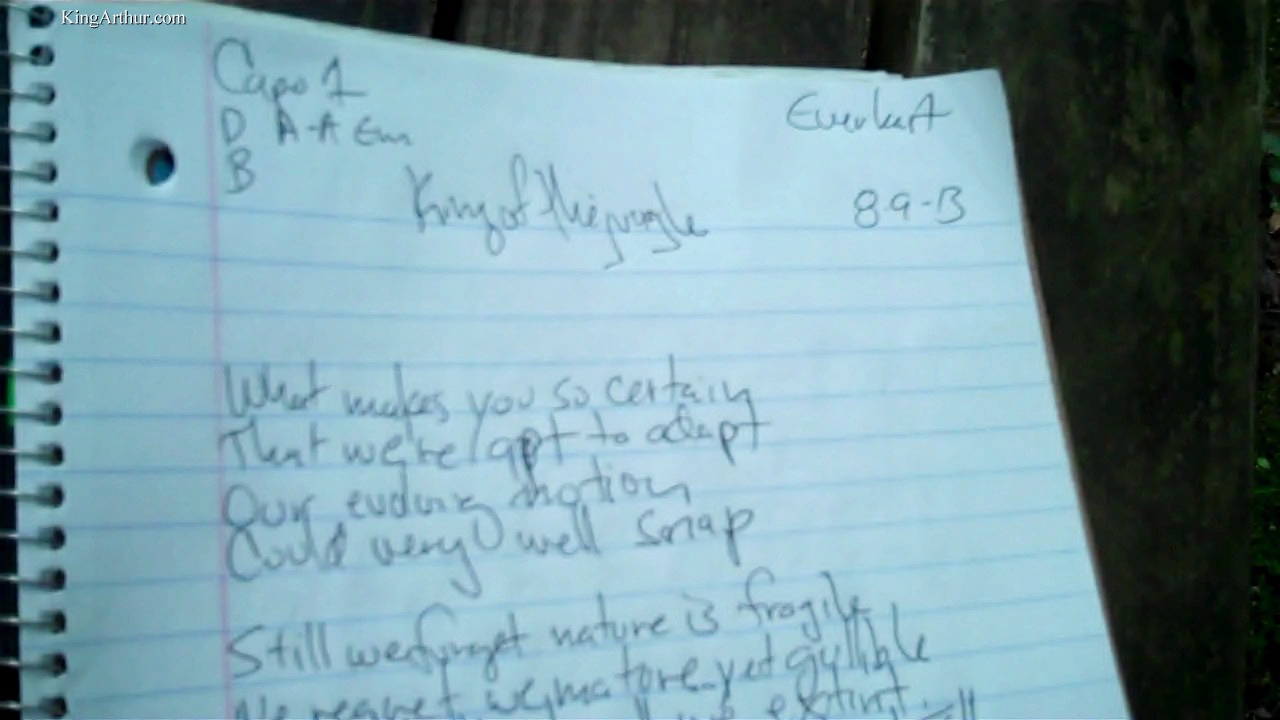 KingArthur.com
Capo 1
D A-A Em
B
King of the jungle
89-B
What makes you so certain
That we're apt to adapt
Our notion
Could very well snap
Still we forget nature is fragile
we mature yet gullible